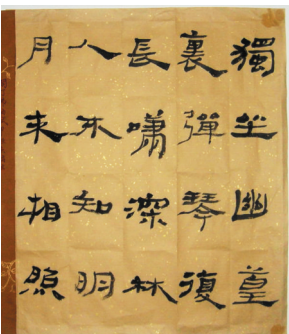 獨坐幽篁
裏彈琴復
長嘯深林
人不知明
月来相照